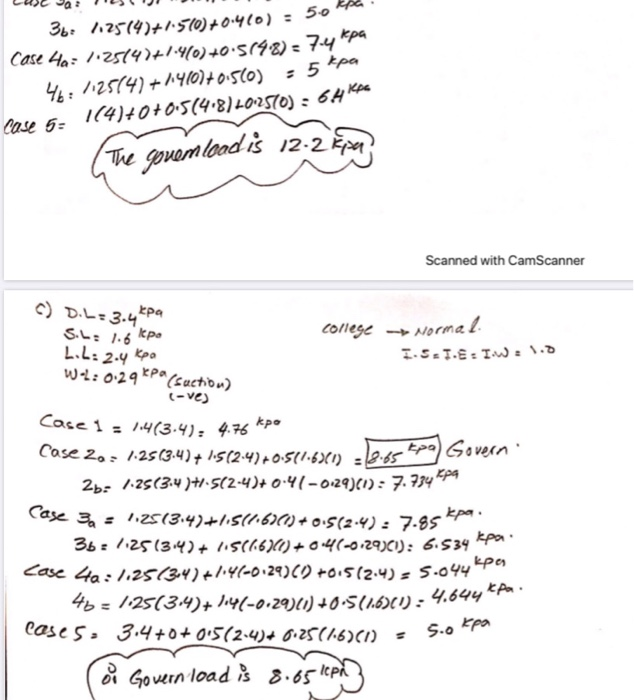 3b= 1.25(4)+1.5(0)+0.4(0) = 5.0 kpa.
Case 4a= 1.25(4)+1.4(0)+0.5(4.8) = 7.4 kpa
4b= 1.25(4)+1.4(0)+0.5(0) = 5 kpa
Case 5= 1(4)+0+0.5(4.8)+0.25(0) = 6.4 kpa
The govern load is 12.2 kpa
Scanned with CamScanner
c) D.L= 3.4 kpa
S.L= 1.6 kpa
L.L= 2.4 kpa
W.L= 0.29 kpa (suction)
(-ve)
college → Normal.
I.S=I.E=I.W= 1.0
Case 1 = 1.4(3.4)= 4.76 kpa
Case 2a= 1.25(3.4)+1.5(2.4)+0.5(1.6)(1) = 8.65 kpa Govern.
2b= 1.25(3.4)+1.5(2.4)+0.4(-0.29)(1)= 7.734 kpa
Case 3a = 1.25(3.4)+1.5(1.6)(1)+0.5(2.4)= 7.85 kpa.
3b= 1.25(3.4)+1.5(1.6)(1)+0.4(-0.29)(1)= 6.534 kpa.
Case 4a= 1.25(3.4)+1.4(-0.29)(1)+0.5(2.4)= 5.044 kpa
4b = 1.25(3.4)+1.4(-0.29)(1)+0.5(1.6)(1)= 4.644 kpa.
Case 5= 3.4+0+0.5(2.4)+0.25(1.6)(1) = 5.0 kpa
Govern load is 8.65 kpa